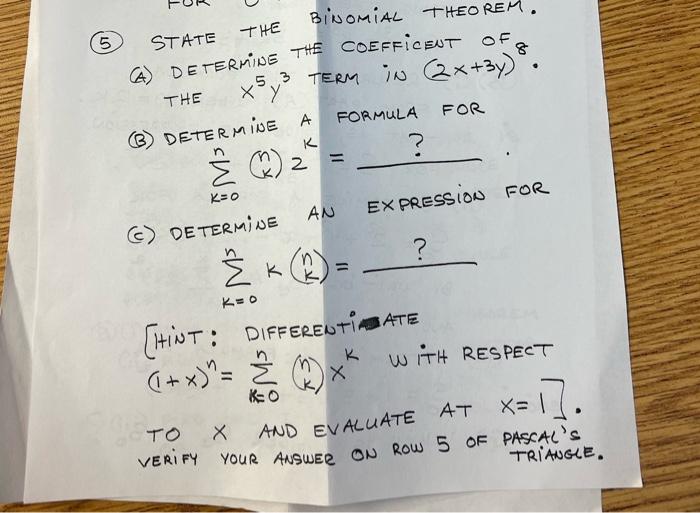 ⑤ STATE THE BINOMIAL THEOREM.
(A) DETERMINE THE COEFFICENT OF
THE x⁵y³ TERM IN (2x+3y)⁸.
(B) DETERMINE A FORMULA FOR
n
∑ (n k) 2ᴷ = ?.
K=0
(C) DETERMINE AN EXPRESSION FOR
n
∑ K (n k) = ?
K=0
[HINT: DIFFERENTIATE
(1+x)ⁿ = n ∑ K=0 (n k) xᴷ WITH RESPECT
TO X AND EVALUATE AT X=1].
VERIFY YOUR ANSWER ON ROW 5 OF PASCAL'S
TRIANGLE.